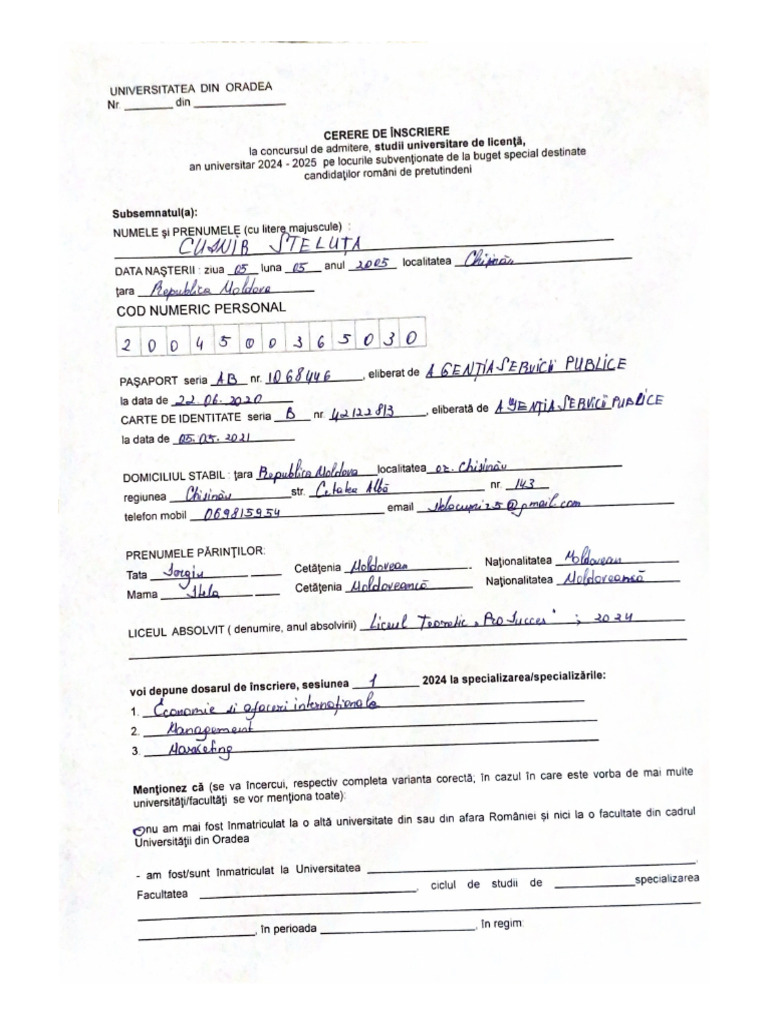 UNIVERSITATEA DIN ORADEA
Nr. ________ din ______________
CERERE DE ÎNSCRIERE
la concursul de admitere, studii universitare de licență,
an universitar 2024 - 2025 pe locurile subvenționate de la buget special destinate
candidaților români de pretutindeni
Subsemnatul(a):
NUMELE și PRENUMELE (cu litere majuscule) :
CUSNIR STELUȚA
DATA NAȘTERII : ziua 05 luna 05 anul 2005 localitatea Chișinău
țara Republica Moldova
COD NUMERIC PERSONAL
2 0 0 4 5 0 0 3 6 5 0 3 0
PAȘAPORT seria AB nr. 1068446, eliberat de AGENȚIA SERVICII PUBLICE
la data de 22.06.2020
CARTE DE IDENTITATE seria B nr 42122813, eliberată de AGENȚIA SERVICII PUBLICE
la data de 05.05.2021
DOMICILIUL STABIL : țara Republica Moldova localitatea or. Chisinău
regiunea Chisinău str. Cetatea Albă nr. 143
telefon mobil 069815954 email @gmail.com
PRENUMELE PĂRINȚILOR:
Tata Serghiu Cetățenia Moldovean Naționalitatea Moldovean
Mama Stela Cetățenia Moldoveancă Naționalitatea Moldoveancă
LICEUL ABSOLVIT ( denumire, anul absolvirii) Liceul Teoretic „Pro Succes" ; 2024
voi depune dosarul de înscriere, sesiunea 1 2024 la specializarea/specializările:
1. Economie si afaceri internaționale
2. Management
3. Marketing
Menționez că (se va încercui, respectiv completa varianta corectă; în cazul în care este vorba de mai multe
universități/facultăți se vor menționa toate):
nu am mai fost înmatriculat la o altă universitate din sau din afara României și nici la o facultate din cadrul
Universității din Oradea
- am fost/sunt înmatriculat la Universitatea ______________,
Facultatea ______________, ciclul de studii de __________specializarea
______________, în perioada ______________, în regim: